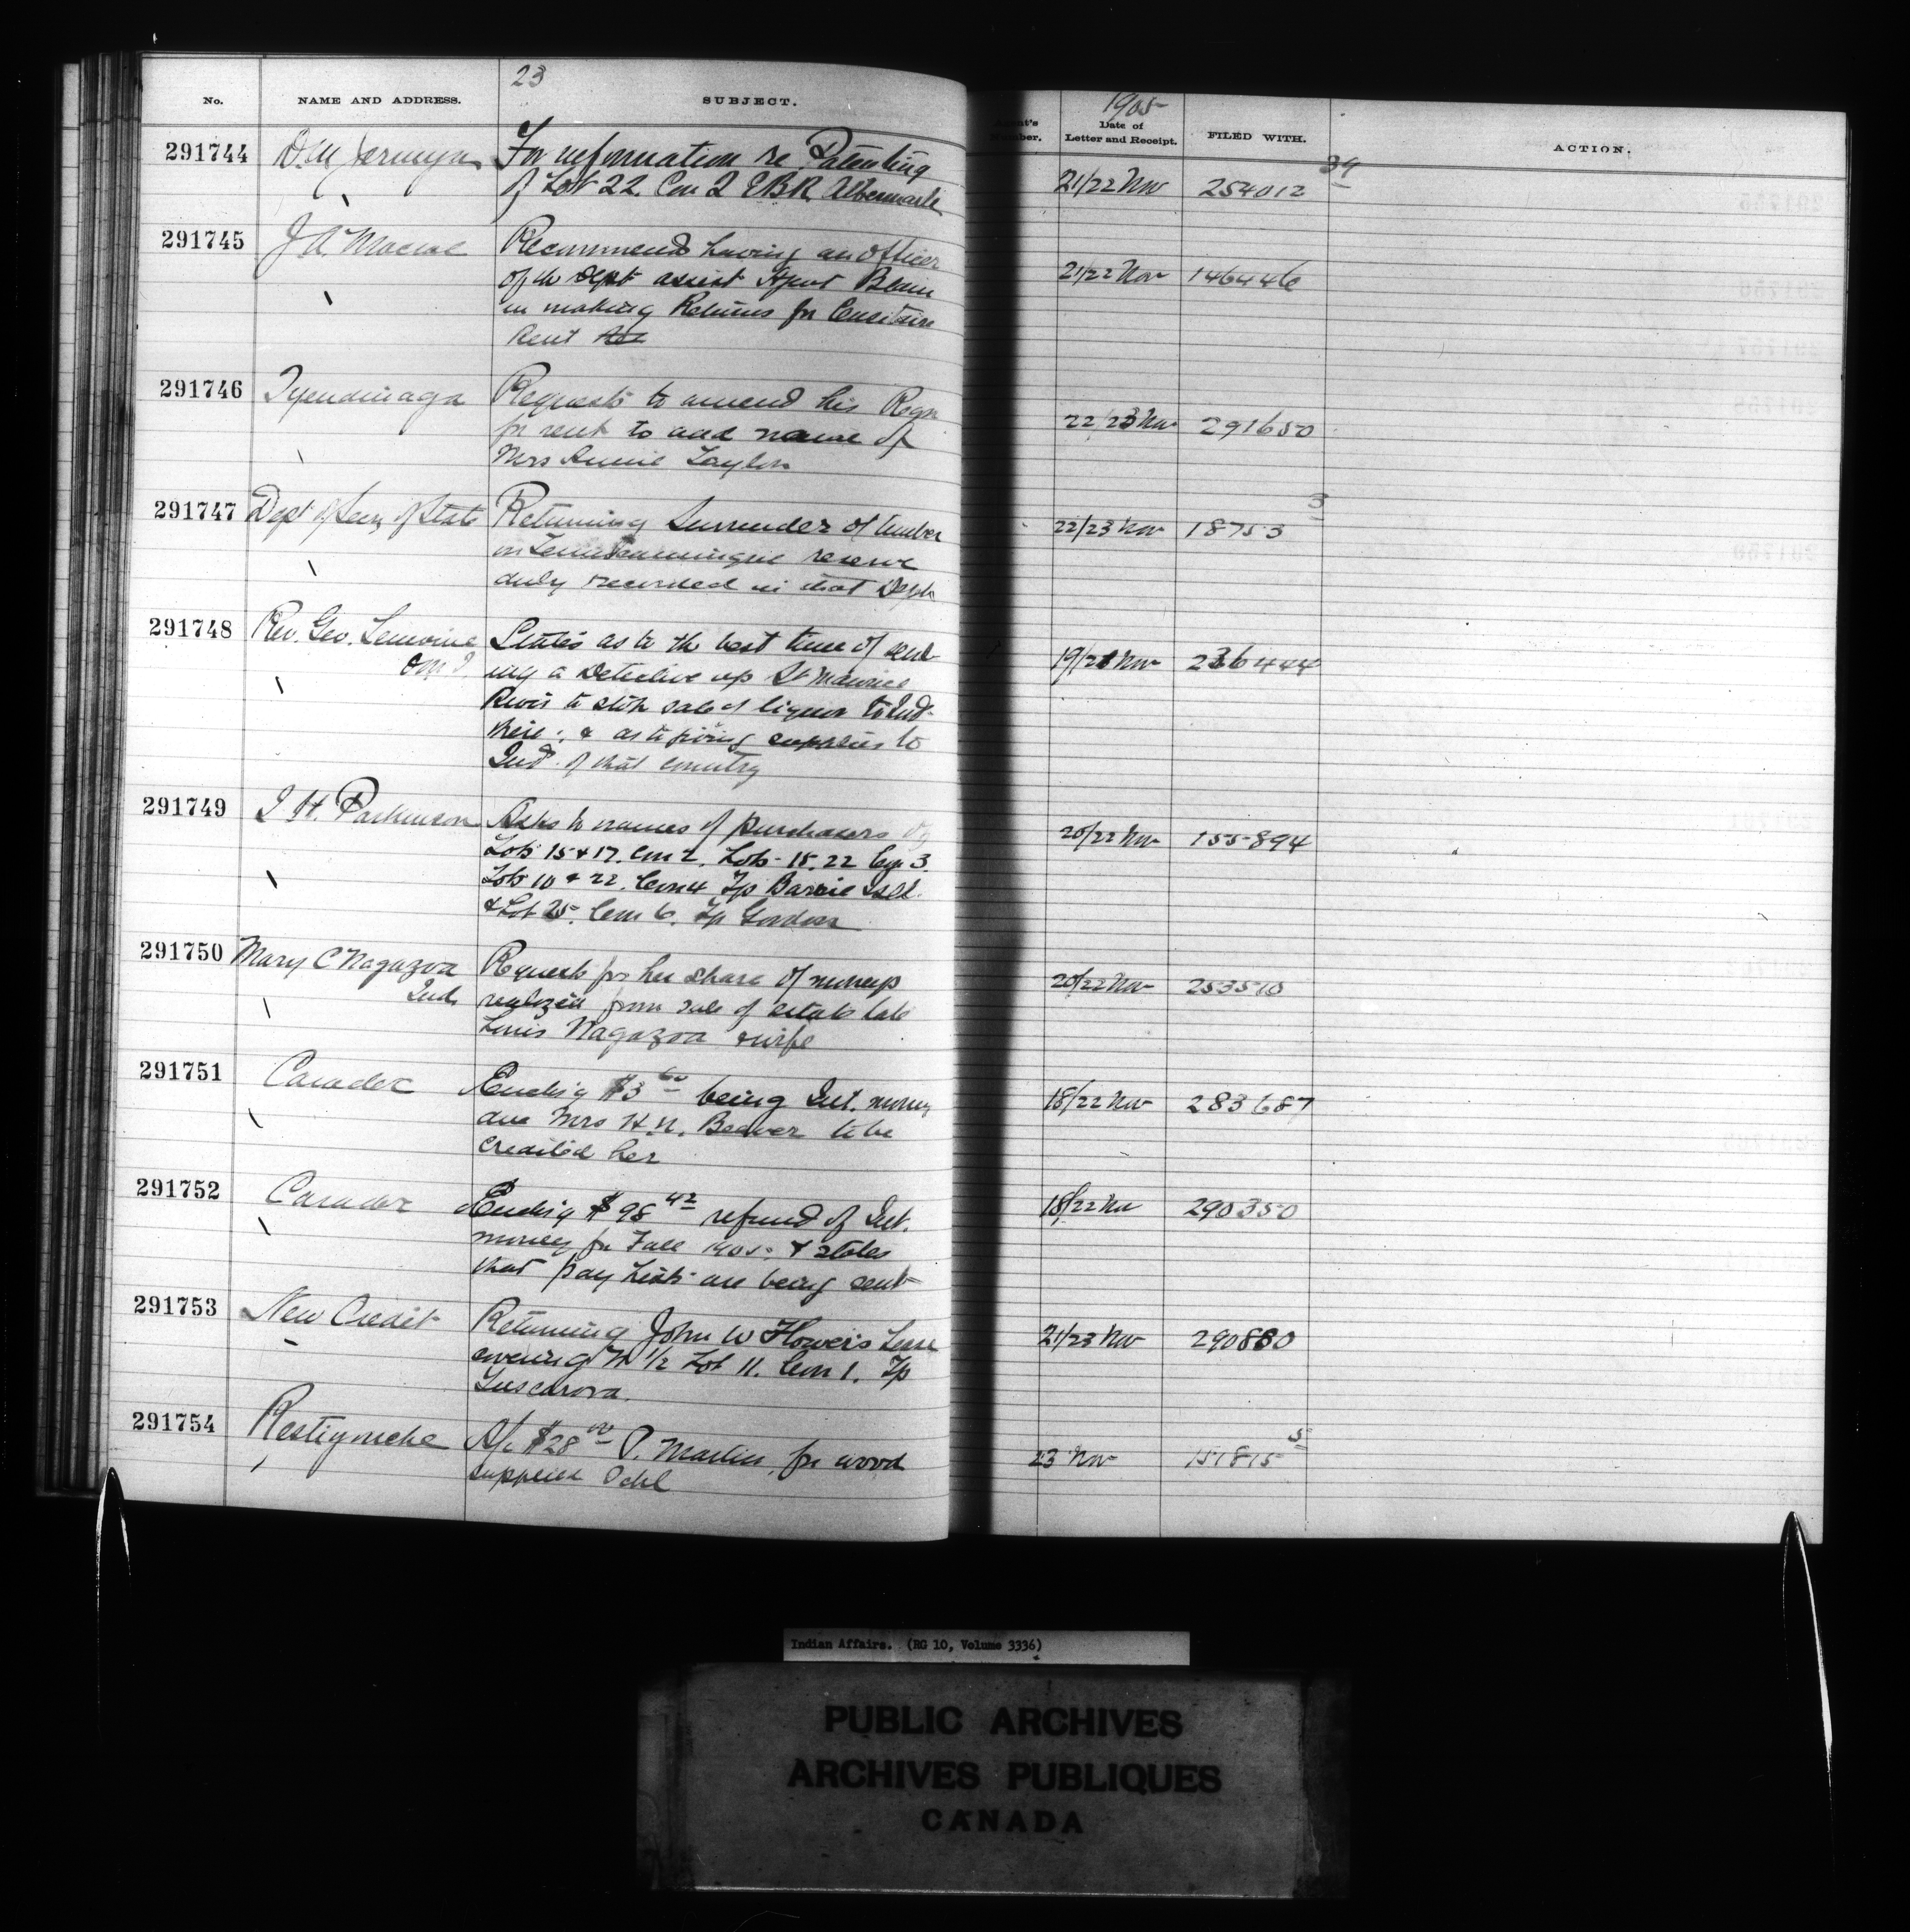 23
No. NAME AND ADDRESS. SUBJECT.
1905
Number. Date of Letter and Receipt. FILED WITH. ACTION.
291744 D. M. Jermyn For information re Patenting 21/22 Nov 254012 34
of Lot 22 Con 2 EBR Albemarle
291745 J. A. Macrae Recommends having an officer 21/22 Nov 146446
of the Dept assist Agent
in making Returns for
Rent
291746 Tyendinaga Requests to amend his Reqn 22/23 Nov 291650
for rent to add name of
Mrs Annie Taylor
291747 Dept of Secy of State Returning Surrender of timber 22/23 Nov 18753 3
on Temiscamingue reserve
duly recorded in that Dept
291748 Rev. Geo. Lemoine States as to the best time of send- 19/21 Nov 236444
O.M.I. ing a Detective up St Maurice
River to stop sale of liquor to Ind.
there; & as to giving supplies to
Ind. of that country
291749 J. H. Parkinson Asks for names of purchasers of 20/22 Nov 155894
Lots 15 & 17. Con 2. Lots 15. 22 Con 3.
Lots 10 & 22. Con 4 Tp Barrie Isld.
& Lot 25. Con 6. Tp Gordon
291750 Mary C Nagazoa Requests for her share of moneys 20/22 Nov 253510
Ind. realized from sale of estate late
Louis Nagazoa & wife
291751 Caradoc Encls'g $3 60 being Int. money 18/22 Nov 283687
due Mrs H. N. Beaver to be
credited her
291752 Caradoc Encls'g $98 42 refund of Int. 18/22 Nov 290350
money for Fall 1905. & states
that pay lists are being sent
291753 New Credit Returning John W Flower's Lease 21/23 Nov 290880
covering N 1/2 Lot 11. Con 1. Tp
Tuscarora.
291754 Restigouche A/c $28 00 P. Martin, for wood 23 Nov 151815 5
supplied Schl
Indian Affairs. (RG 10, Volume 3336)
PUBLIC ARCHIVES
ARCHIVES PUBLIQUES
CANADA